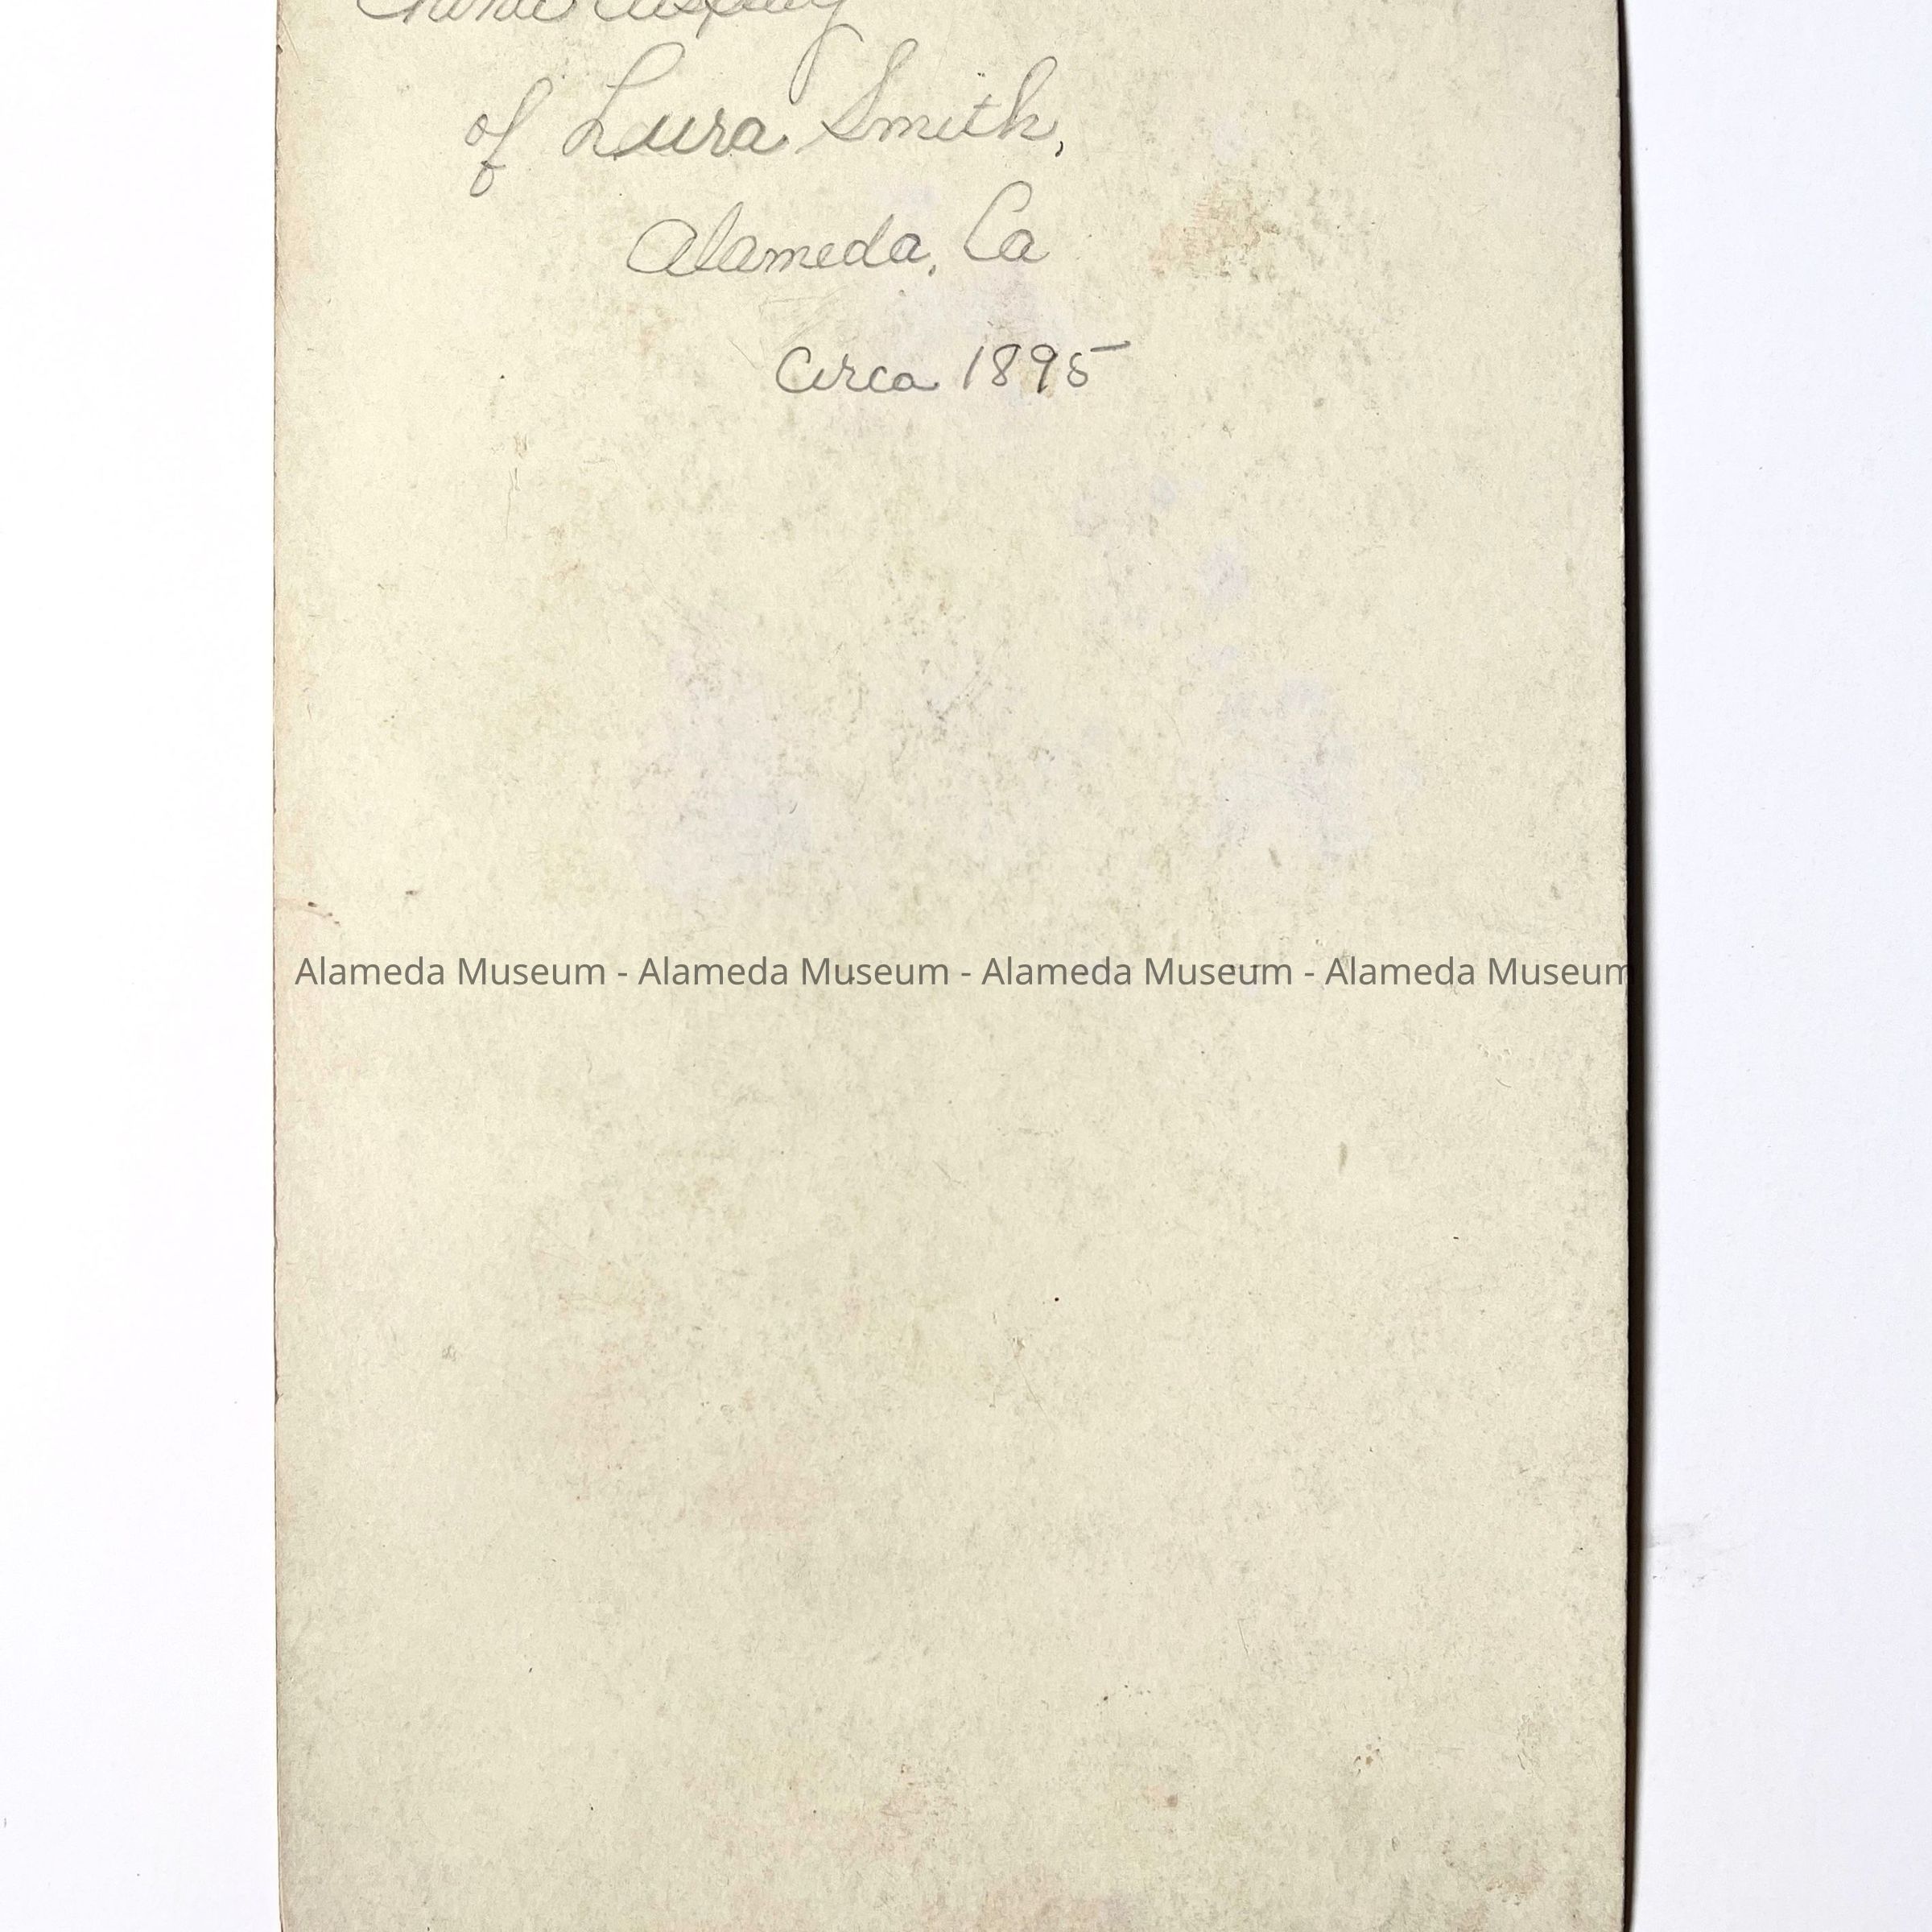 China display
of Laura Smith,
Alameda, Ca
Circa 1895
Alameda Museum - Alameda Museum - Alameda Museum - Alameda Museum